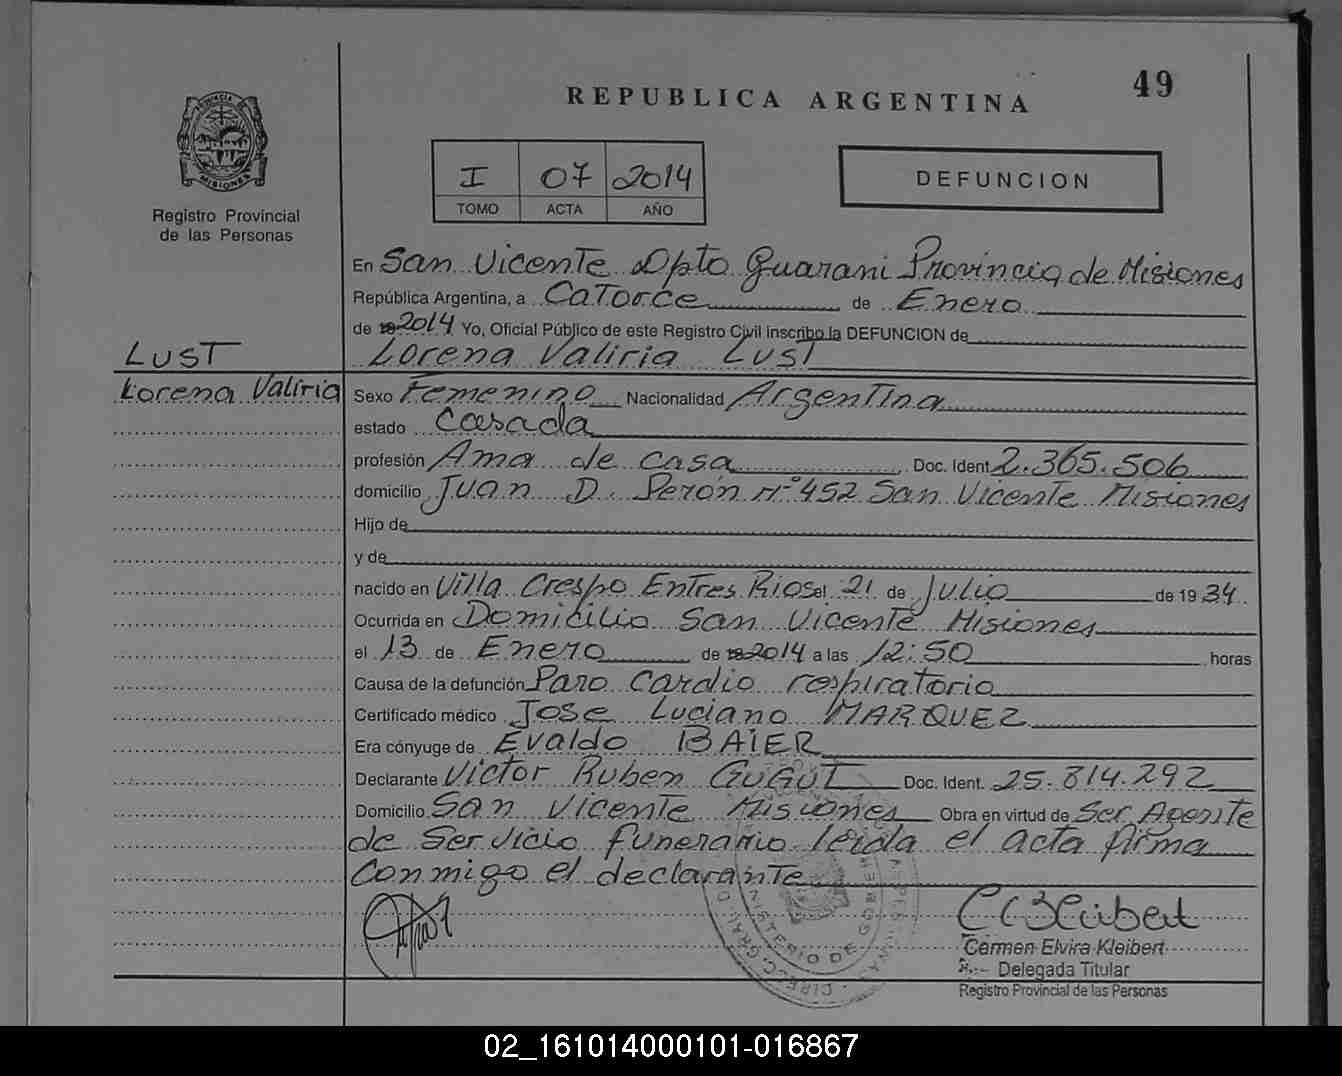 49
REPUBLICA ARGENTINA
PROVINCIA DE
MISIONES
Registro Provincial
de las Personas
I 07 2014
TOMO ACTA AÑO
DEFUNCION
En San Vicente Dpto Guarani Provincia de Misiones
República Argentina, a Catorce de Enero
de 2014 Yo, Oficial Público de este Registro Civil inscribo la DEFUNCION de
LUST
Lorena Valiria Lust
Lorena Valiria
Sexo Femenino Nacionalidad Argentina
estado Casada
profesión Ama de casa Doc. Ident. 2.365.506
domicilio Juan D. Perón Nº 452 San Vicente Misiones
Hijo de
y de
nacido en Villa Crespo Entres Rios el 21 de Julio de 1934
Ocurrida en Domicilio San Vicente Misiones
el 13 de Enero de 2014 a las 12:50 horas
Causa de la defunción Paro cardio respiratorio
Certificado médico Jose Luciano MARQUEZ
Era cónyuge de Evaldo BAIER
Declarante Victor Ruben GUGUT Doc. Ident. 25.814.292
Domicilio San Vicente Misiones Obra en virtud de Ser Agente
de Servicio funerario leida el acta firma
Conmigo el declarante
MINISTERIO DE GOBIERNO
Carmen Elvira Kleibert
Delegada Titular
Registro Provincial de las Personas
02_161014000101-016867